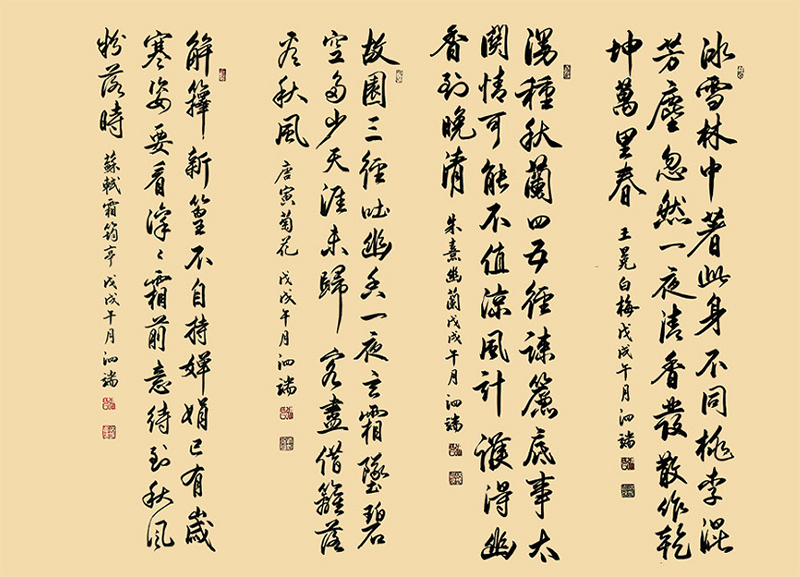 冰雪林中著此身不同桃李混
芳塵忽然一夜清香發散作乾
坤萬里春 王冕白梅戊戌午月泗端
漫種秋蘭四五徑疎簾底事太
關情可能不值涼風計護得幽
香到晚清 朱熹幽蘭戊戌午月泗端
故園三徑吐幽叢一夜玄霜墜碧
空多少天涯未歸客盡借籬落
看秋風 唐寅菊花 戊戌午月泗端
解籜新篁不自持嬋娟已有歲
寒姿要看凜々霜前意待到秋風
粉落時 蘇軾霜筠亭 戊戌午月泗端